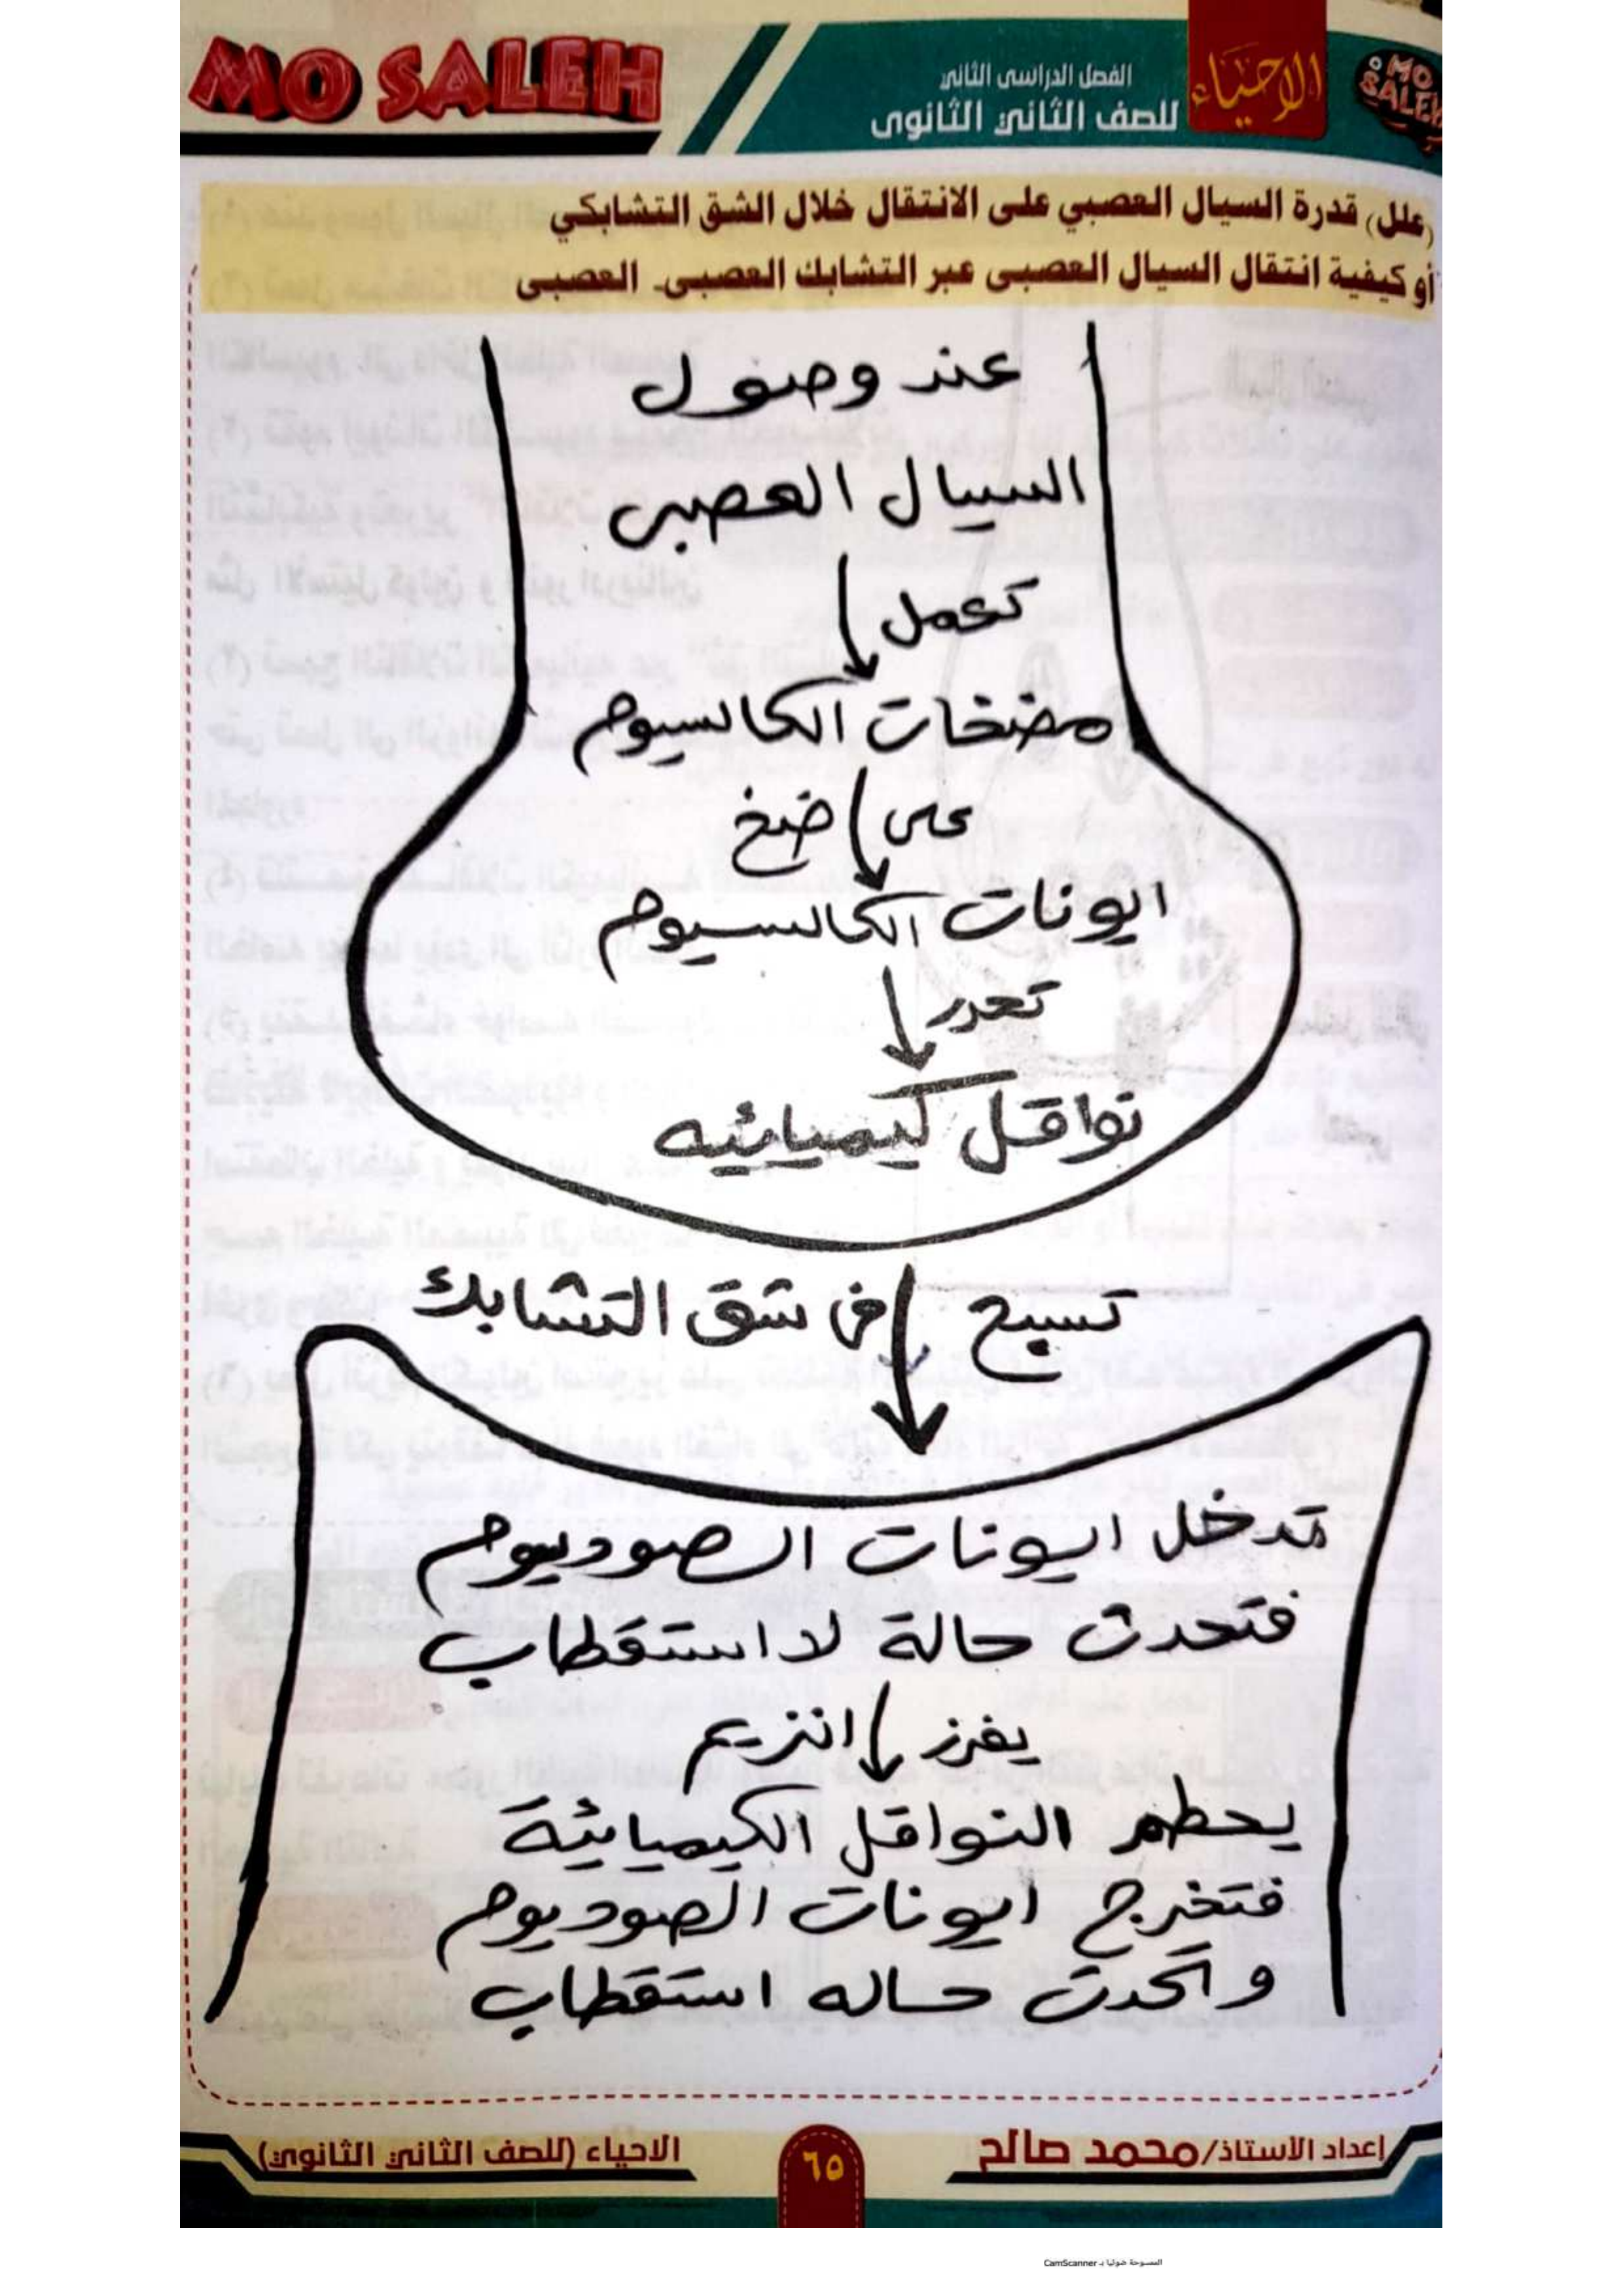 MO SALEH
الفصل الدراسى الثانى
للصف الثاني الثانوى
الاحياء
MO SALEH
(علل) قدرة السيال العصبي على الانتقال خلال الشق التشابكي
أو كيفية انتقال السيال العصبى عبر التشابك العصبى- العصبى
عند وصول
السيال العصبى
تعمل
مضخات الكالسيوم
على ضخ
ايونات الكالسيوم
تحرر
نواقل كيميائيه
تسبح فى شق التشابك
تدخل ايونات الصوديوم
فتحدث حالة لا استقطاب
يفرز انزيم
يحطم النواقل الكيميائية
فتخرج ايونات الصوديوم
و تحدث حاله استقطاب
إعداد الأستاذ/محمد صالح
٦٥
الاحياء (للصف الثاني الثانوي)
الممسوحة ضوئيا بـ CamScanner